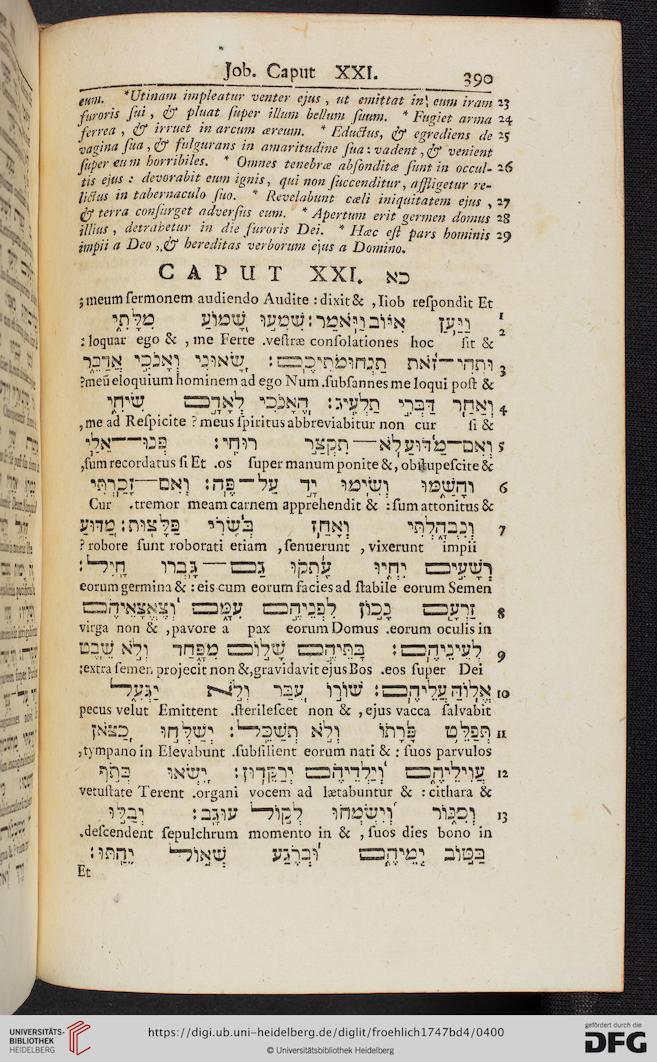 Job. Caput XXI. 390
eum. *Utinam impleatur venter ejus, ut emittat in eum iram 23
furoris sui, & pluat super illum bellum suum. * Fugiet arma 24
ferrea, & irruet in arcum æreum. * Eductus, & egrediens de 25
vagina sua, & fulgurans in amaritudine sua: vadent, & venient
super eum horribiles. * Omnes tenebræ absconditæ sunt in occul- 26
tis ejus: devorabit eum ignis, qui non succenditur, affligetur re-
lictus in tabernaculo suo. * Revelabunt cæli iniquitatem ejus, 27
& terra consurget adversus eum. * Apertum erit germen domus 28
illius, detrahetur in die furoris Dei. * Hæc est pars hominis 29
impii a Deo, & hereditas verborum ejus a Domino.
CAPUT XXI. כא
; meum sermonem audiendo Audite : dixit & , Iiob respondit Et
וַיַּעַן אִיּוֹב וַיֹּאמַר: שִׁמְעוּ שָׁמוֹעַ מִלָּתִי 1 2
: loquar ego & , me Ferte .vestræ consolationes hoc sit &
וּתְהִי־זֹאת תַּנְחוּמֹתֵיכֶם: שָׂאוּנִי וְאָנֹכִי אֲדַבֵּר 3
?meũ eloquium hominem ad ego Num .subsannes me loqui post &
וְאַחַר דַּבְּרִי תַלְעִיג: הֶאָנֹכִי לְאָדָם שִׂיחִי 4
, me ad Respicite ? meus spiritus abbreviabitur non cur si &
וְאִם־מַדּוּעַ לֹא־תִקְצַר רוּחִי: פְּנוּ־אֵלַי 5
,sum recordatus si Et .os super manum ponite &, obstupescite &
וְהָשַׁמּוּ וְשִׂימוּ יָד עַל־פֶּה: וְאִם־זָכַרְתִּי 6
Cur .tremor meam carnem apprehendit & : sum attonitus &
וְנִבְהָלְתִּי וְאָחַז בְּשָׂרִי פַּלָּצוּת: מַדּוּעַ 7
? robore sunt roborati etiam , senuerunt , vixerunt impii
רְשָׁעִים יִחְיוּ עָתְקוּ גַּם־גָּבְרוּ חָיִל:
eorum germina & : eis cum eorum facies ad stabile eorum Semen
זַרְעָם נָכוֹן לִפְנֵיהֶם עִמָּם וְצֶאֱצָאֵיהֶם 8
virga non & , pavore a pax eorum Domus .eorum oculis in
לְעֵינֵיהֶם: בָּתֵּיהֶם שָׁלוֹם מִפָּחַד וְלֹא שֵׁבֶט 9
:extra semen projecit non &, gravidavit ejus Bos .eos super Dei
אֱלוֹהַּ עֲלֵיהֶם: שׁוֹרוֹ עִבַּר וְלֹא יַגְעִל 10
pecus velut Emittent .sterilescet non & , ejus vacca salvabit
תְּפַלֵּט פָּרָתוֹ וְלֹא תְשַׁכֵּל: יְשַׁלְּחוּ כַצֹּאן 11
,tympano in Elevabunt .subsilient eorum nati & : suos parvulos
עֲוִילֵיהֶם וְיַלְדֵיהֶם יְרַקֵּדוּן: יִשְׂאוּ בְּתֹף 12
vetustate Terent .organi vocem ad lætabuntur & : cithara &
וְכִנּוֹר וְיִשְׂמְחוּ לְקוֹל עוּגָב: יְבַלּוּ 13
.descendent sepulchrum momento in & , suos dies bono in
בַטּוֹב יְמֵיהֶם וּבְרֶגַע שְׁאוֹל יֵחָתּוּ:
Et
UNIVERSITÄTS-
BIBLIOTHEK
HEIDELBERG
https://digi.ub.uni-heidelberg.de/diglit/froehlich1747bd4/0400
© Universitätsbibliothek Heidelberg
gefördert durch die
DFG